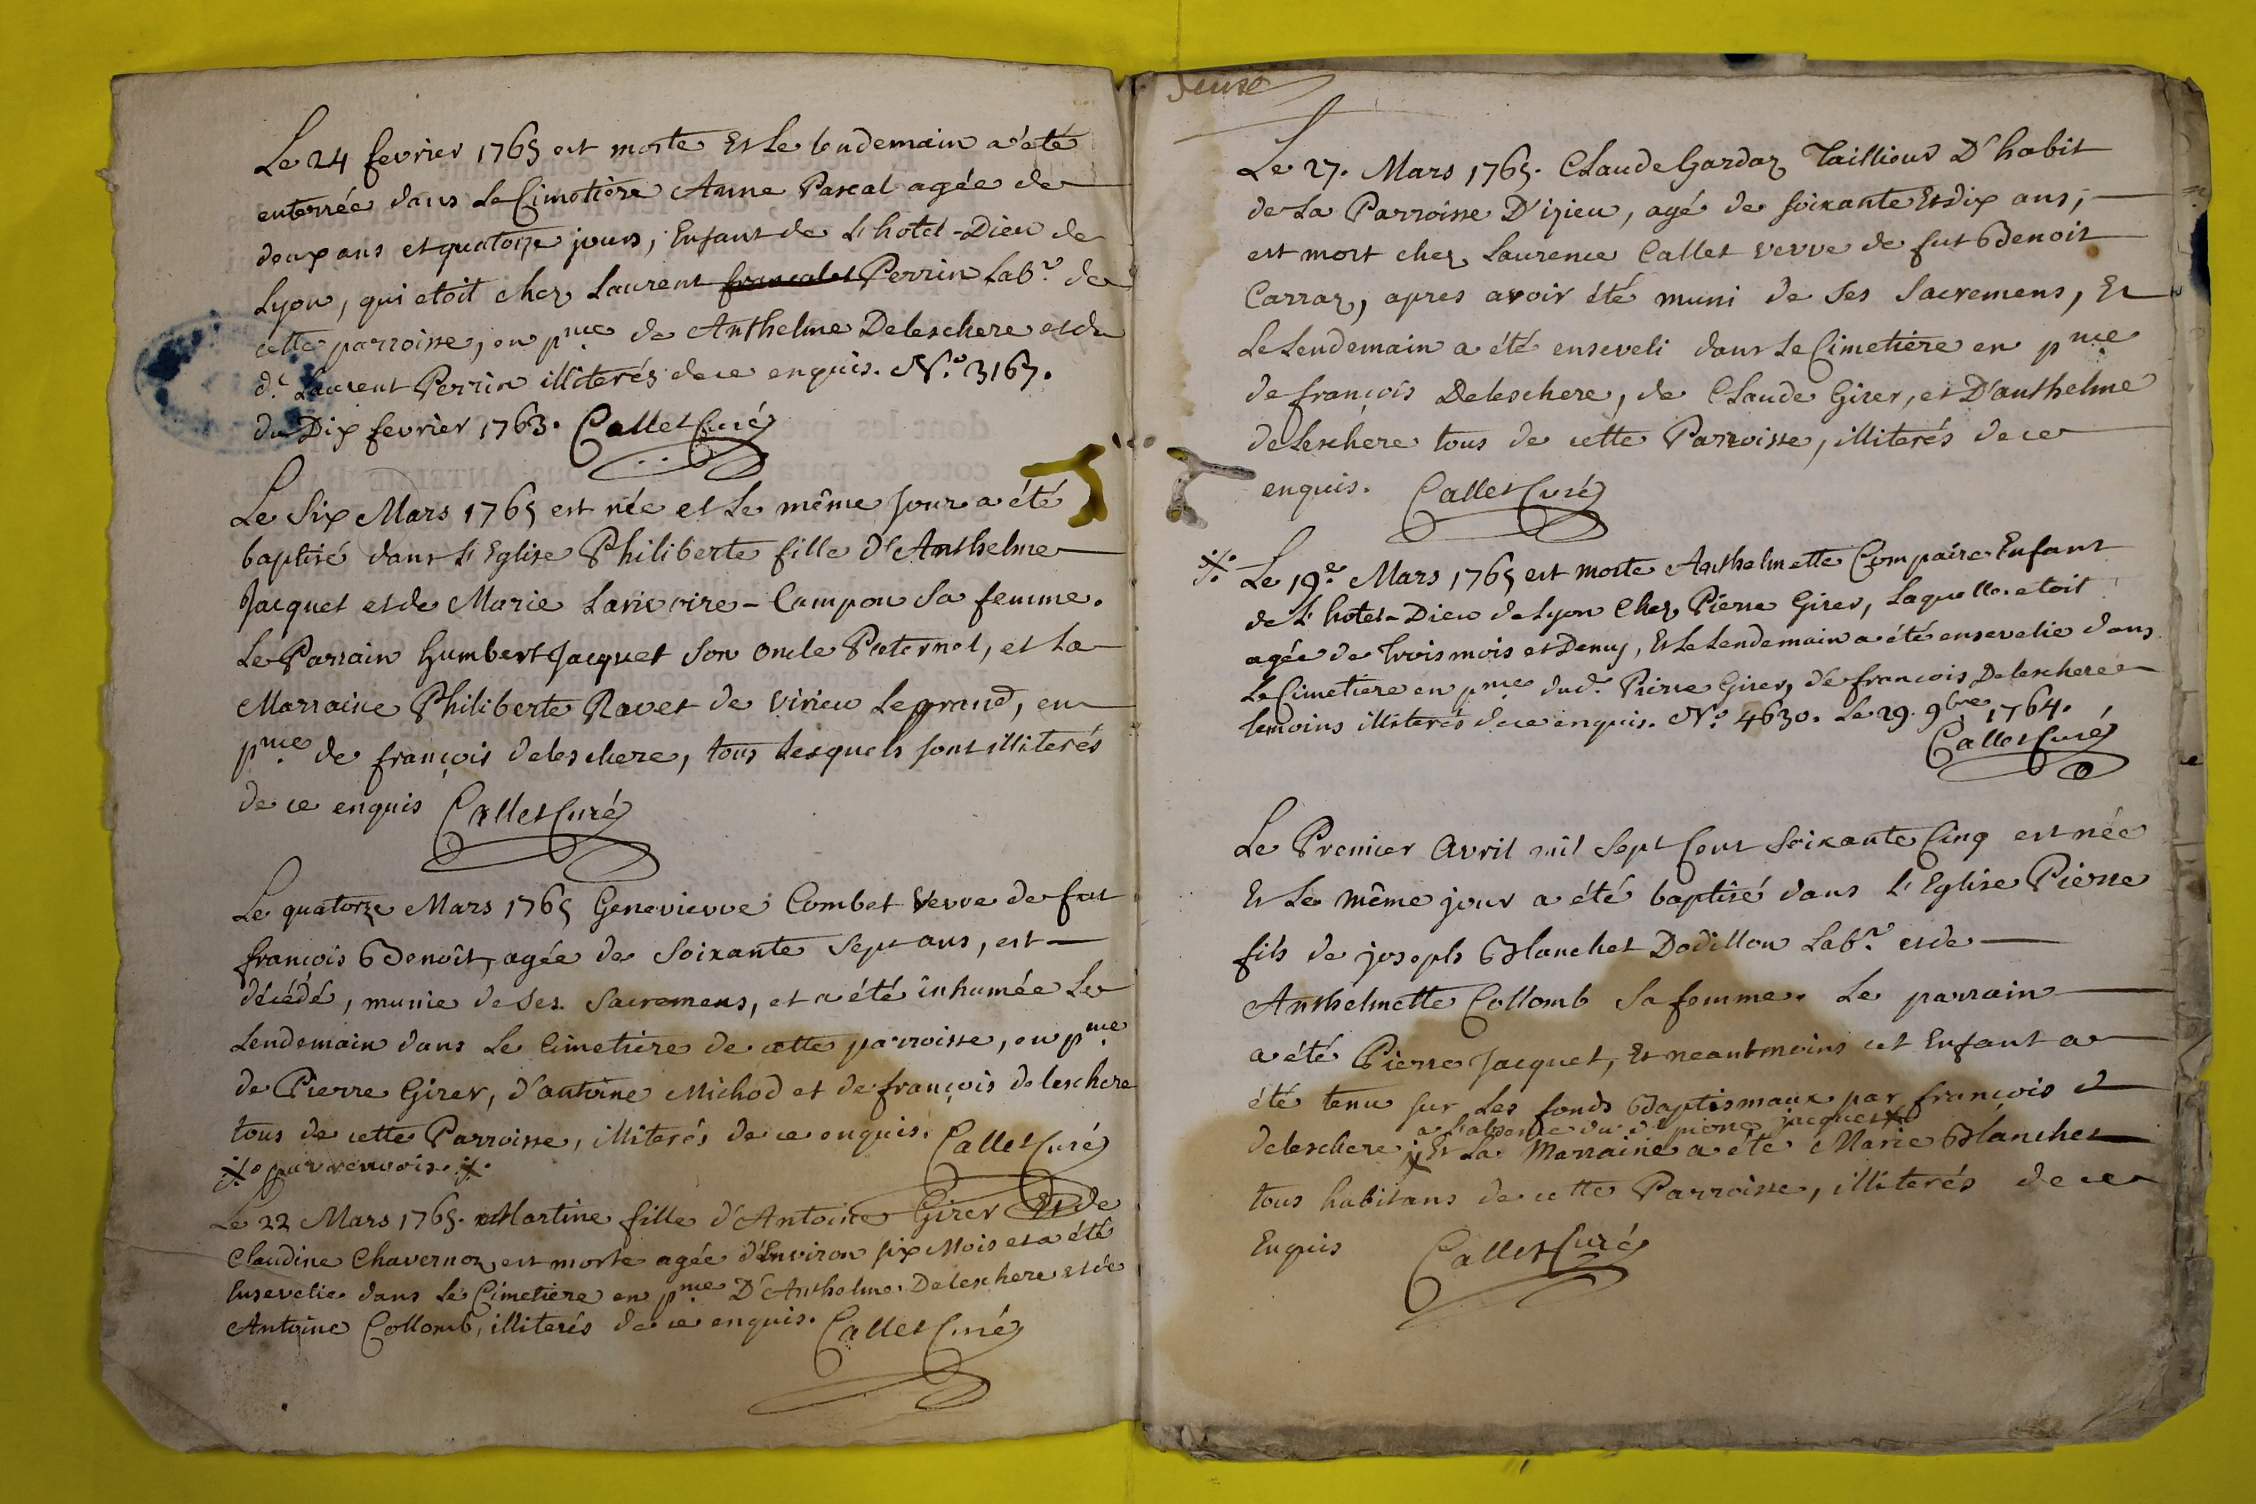 Le 24 fevrier 1765 est morte Et Le lendemain a été
enterrée dans Le Cimetière Anne Pascal agée de
deux ans et quatorze jours, Enfant de L'hotel-Dieu de
Lyon, qui etoit chez Laurent francalet Perrin Labr. de
cette parroisse, en pnce de Anthelme Deleschere et du
dt. Laurent Perrin illiterés de ce enquis. No. 3167.
du Dix fevrier 1763. Callet Curé
Le Six Mars 1765 est née et Le même Jour a été
baptisé dans L'Eglise Philiberte fille d'Anthelme
Jacquet et de Marie Larivoire-Campon Sa femme.
Le Parrain Humbert Jacquet Son Oncle Paternel, et La
Marraine Philiberte Ravet de Virieu Le grand, en
pnce de françois deleschere, tous Lesquels sont illiterés
de ce enquis Callet Curé
Le quatorze Mars 1765 Genevievve Combet Vevve de fut
françois Benoît, agée de Soixante Sept ans, est
décédé, munie de Ses Sacremens, et a été inhumée Le
Lendemain dans Le Cimetière de cette parroisse, en pnce
de Pierre Girer, d'antoine Michod et de françois deleschere
tous de cette Parroisse, illiterés de ce enquis. Callet Curé
pur renvois
Le 22 Mars 1765. Martine fille d'Antoine Girer Et de
Claudine Chavernoz est morte agée d'Environ six Mois et a été
Ensevelie dans Le Cimetière en pnce D'Anthelme Deleschere et de
Antoine Collomb, illiterés de ce enquis. Callet Curé
Le 27. Mars 1765. Claude Gardaz Taillieur D'habit
de La Parroisse D'izieu, agé de soixante Et dix ans,
est mort chez Laurence Callet vevve de fut Benoit
Carraz, apres avoir été muni de Ses Sacremens, Et
Le Lendemain a été enseveli dans Le Cimetière en pnce
de françois Deleschere, de Claude Girer, et D'anthelme
deLeschere tous de cette Parroisse, illiterés de ce
enquis. Callet Curé
Le 19e Mars 1765 est morte Anthelmette Compaire Enfant
de L'hotel-Dieu de Lyon Chez Pierre Girer, Laquelle etoit
agée de Trois mois et Demy, Et Le Lendemain a été ensevelie dans
Le Cimetiere en pnce dud. Pierre Girer, de françois Deleschere
temoins illiterés de ce enquis. No. 4630. Le 29. 9bre 1764.
Callet Curé
Le Premier Avril mil Sept Cent Soixante Cinq est née
Et Le même jour a été baptisé dans L'Eglise Pierre
fils de joseph Blanchet Dodillon Labr. et de
Anthelmette Collomb Sa femme. Le parrain
a été Pierre Jacquet, Et neantmoins cet Enfant a
été tenu sur Les fonds Baptismaux par françois
a L'absence du dt pierre jacquet
deleschere, Et La Marraine a été Marie Blanchet
tous habitans de cette Parroisse, illiterés de ce
Enquis Callet Curé